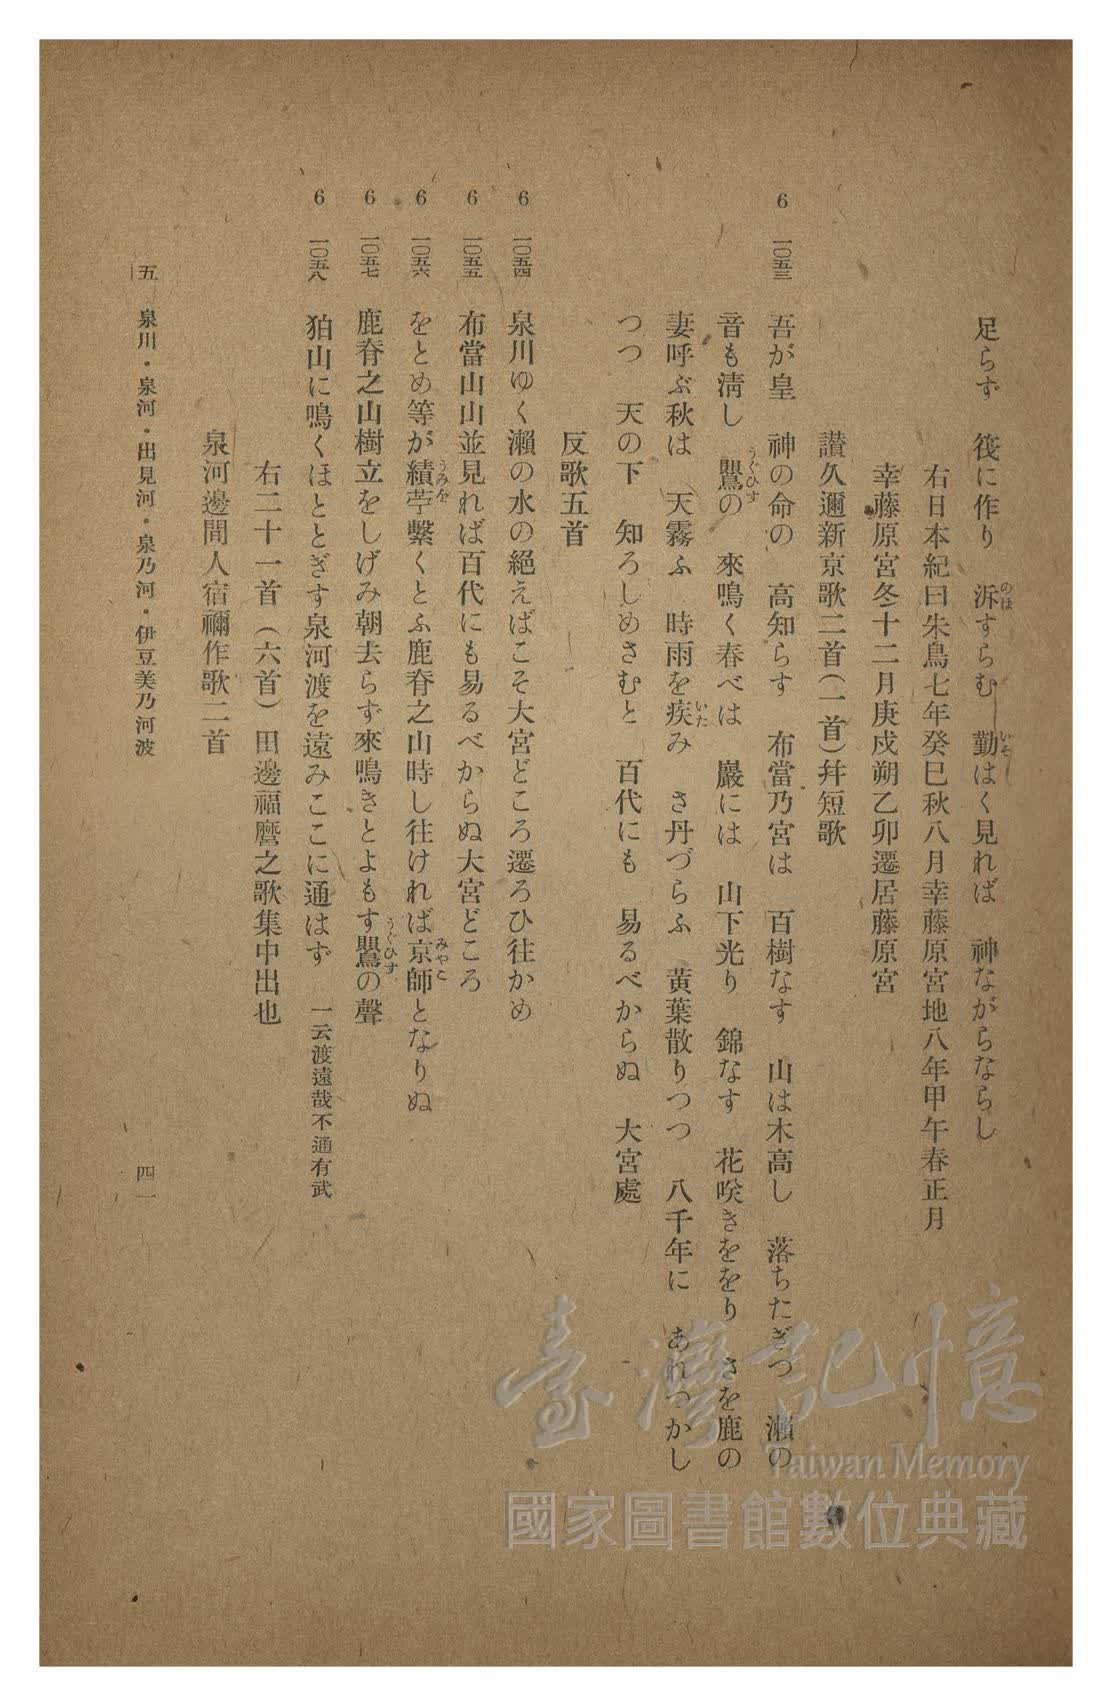 足らず　筏に作り　泝すらむ　勤はく見れば　神ながらならし
のぼ
いそ
右日本紀曰朱鳥七年癸巳秋八月幸藤原宮地八年甲午春正月
幸藤原宮冬十二月庚戍朔乙卯遷居藤原宮
讃久邇新京歌二首(一首)幷短歌
6 一〇五三 吾が皇　神の命の　高知らす　布當乃宮は　百樹なす　山は木高し　落ちたぎつ　瀨の
音も淸し　鸎の　來鳴く春べは　巖には　山下光り　錦なす　花咲きををり　さを鹿の
うぐひす
妻呼ぶ秋は　天霧ふ　時雨を疾み　さ丹づらふ　黃葉散りつつ　八千年に　あれつかし
いた
つつ　天の下　知ろしめさむと　百代にも　易るべからぬ　大宮處
反歌五首
6 一〇五四 泉川ゆく瀨の水の絕えばこそ大宮どころ遷ろひ往かめ
6 一〇五五 布當山山並見れば百代にも易るべからぬ大宮どころ
6 一〇五六 をとめ等が績苧繫くとふ鹿脊之山時し往ければ京師となりぬ
うみを
みやこ
6 一〇五七 鹿脊之山樹立をしげみ朝去らず來鳴きとよもす鸎の聲
うぐひす
6 一〇五八 狛山に鳴くほととぎす泉河渡を遠みここに通はず　一云渡遠哉不通有武
右二十一首(六首)田邊福麿之歌集中出也
泉河邊間人宿禰作歌二首
五　泉川・泉河・出見河・泉乃河・伊豆美乃河波
四一
臺灣記憶
Taiwan Memory
國家圖書館數位典藏